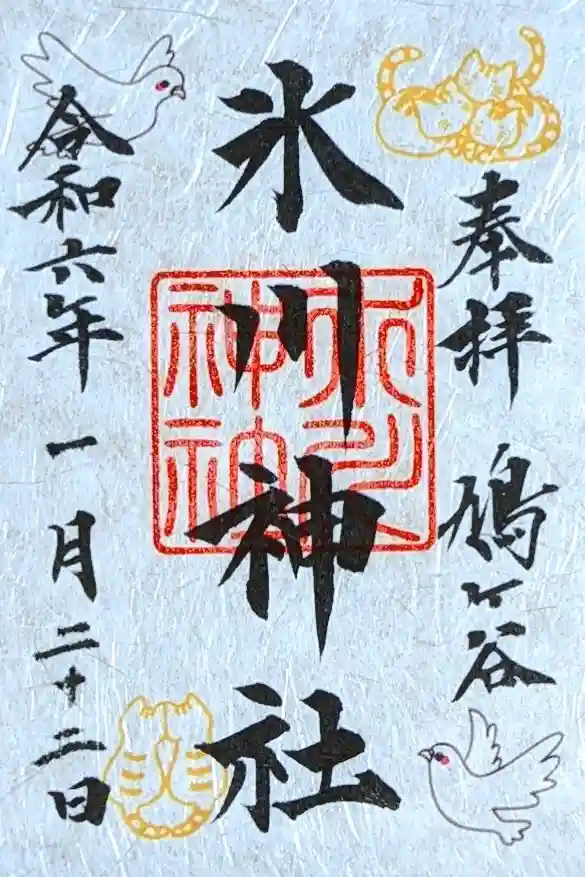 奉拝 鳩ヶ谷
氷川神社
令和六年 一月二十二日